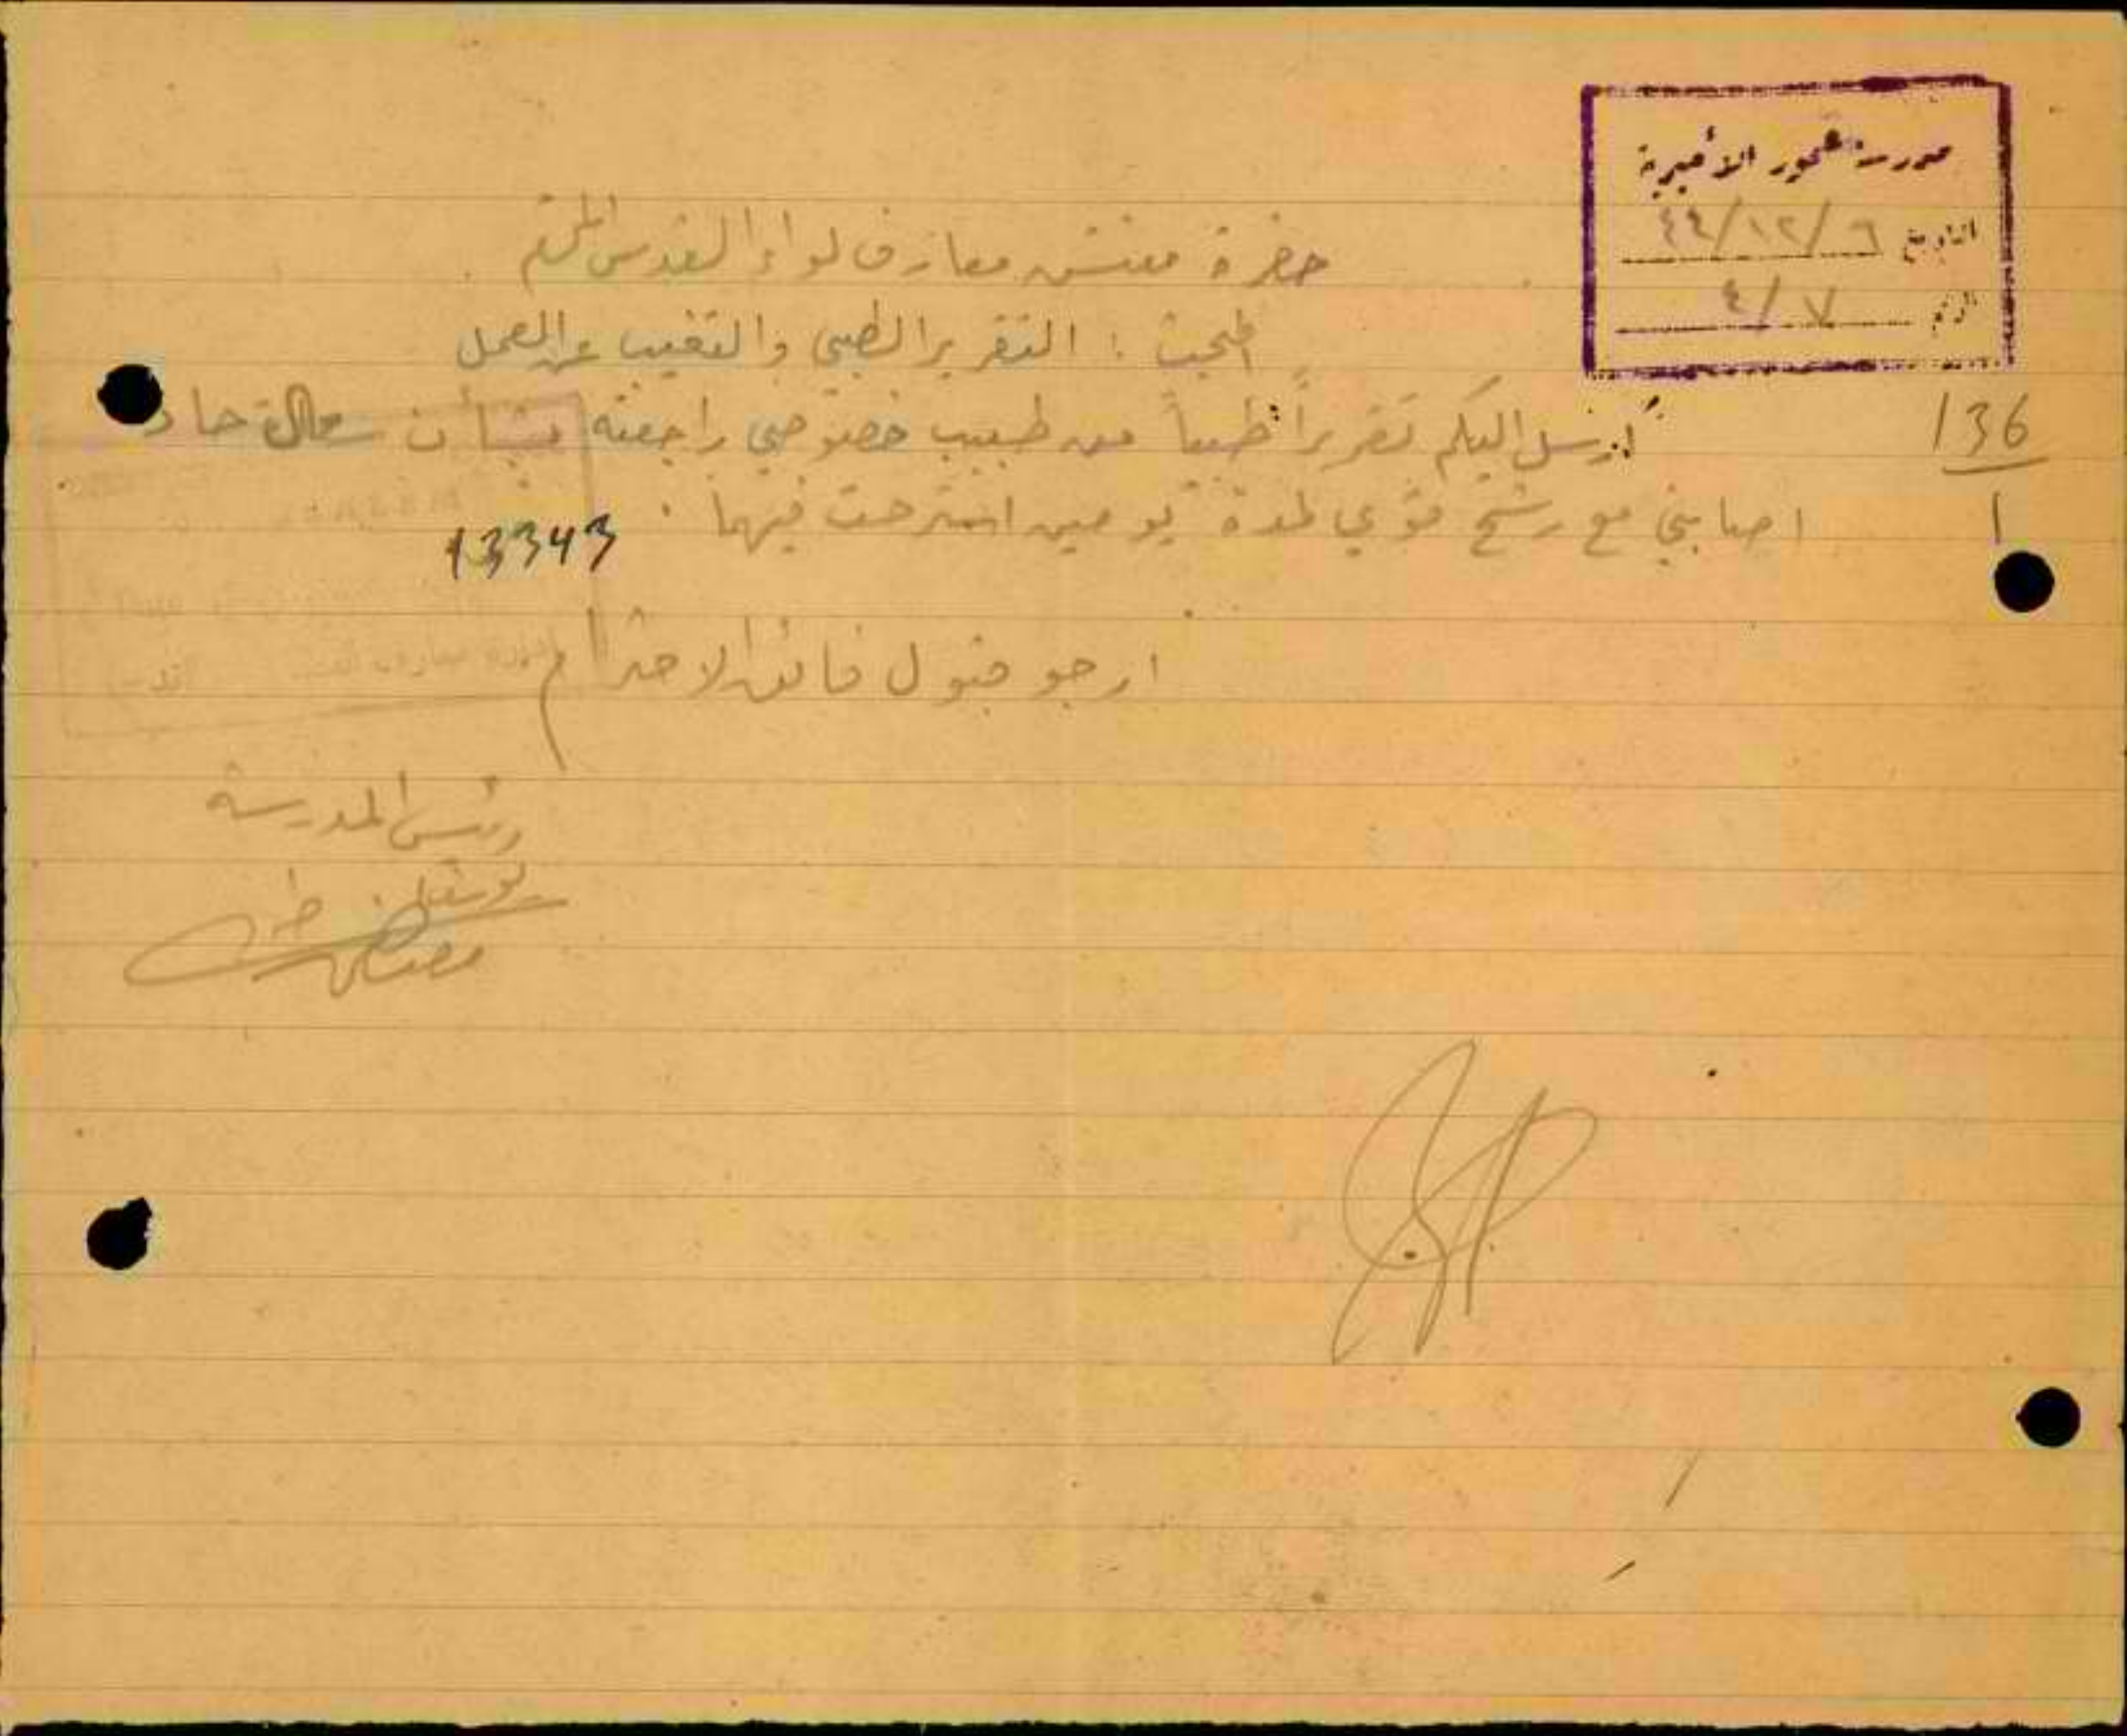 مدرسة عجور الأميرية
التاريخ ٦/١٢/٤٤
الرقم ٧/٤
حضرة مفتش معارف لواء القدس المحترم
المبحث : التقرير الطبي والتغيب عن العمل
136
ارسل اليكم تقريراً طبياً من طبيب خصوصي راجعته بشأن سعال حاد
1
اصابني مع رشح قوي لمدة يومين استرحت فيهما .
13343
ارجو قبول فائق الاحترام
رئيس المدرسة